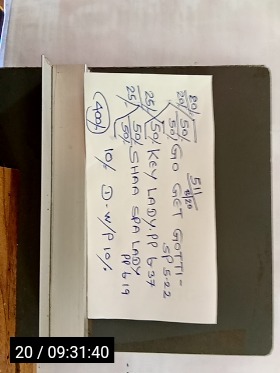 511
8/20
20/ 50/ GO GET GOTTI -
20/ 50/ SP 522
25/ 50/ KEY LADY. PP 637
25/ 50/ SHAA SPA LADY.
50/ PP 619
400/ 10/. D-W/P 10%
20 / 09:31:40